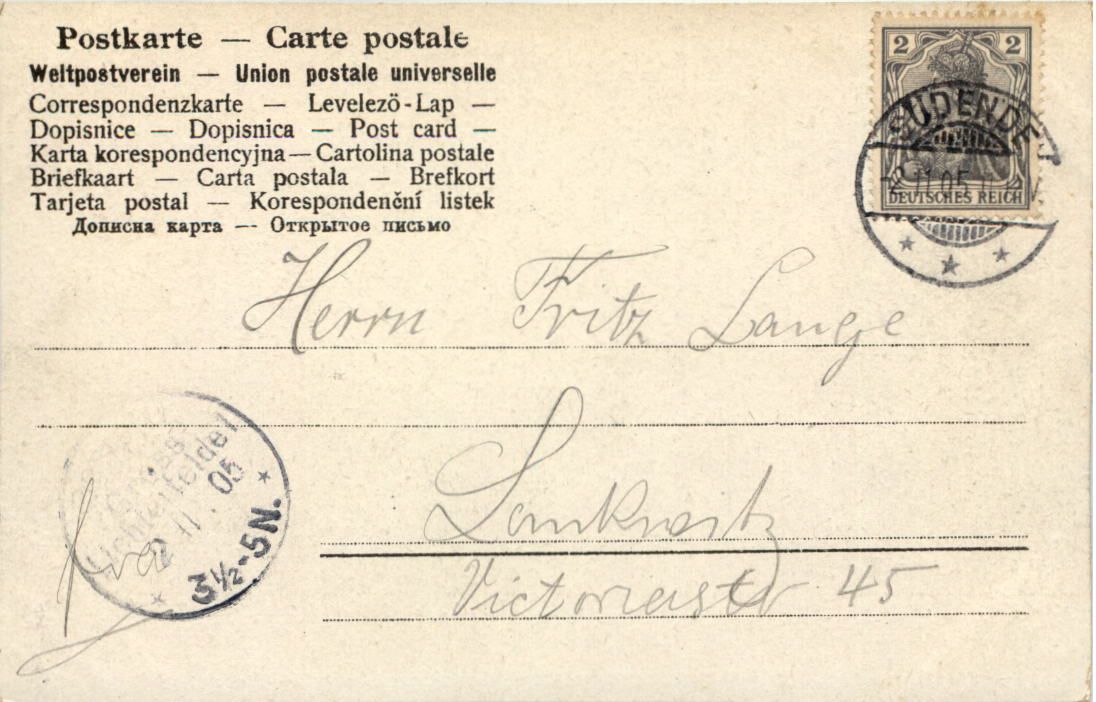 Postkarte — Carte postale
Weltpostverein — Union postale universelle
Correspondenzkarte — Levelező-Lap —
Dopisnice — Dopisnica — Post card —
Karta korespondencyjna — Cartolina postale
Briefkaart — Carta postala — Brefkort
Tarjeta postal — Korespondenční listek
Дописна карта — Открытое письмо
2 2
DEUTSCHES REICH
SÜDENDE
2.11.05
Herrn Fritz Lange
Lankwitz
Victoriastr 45
Gross
Lichterfelde 1
2 11. 05
3½-5N.